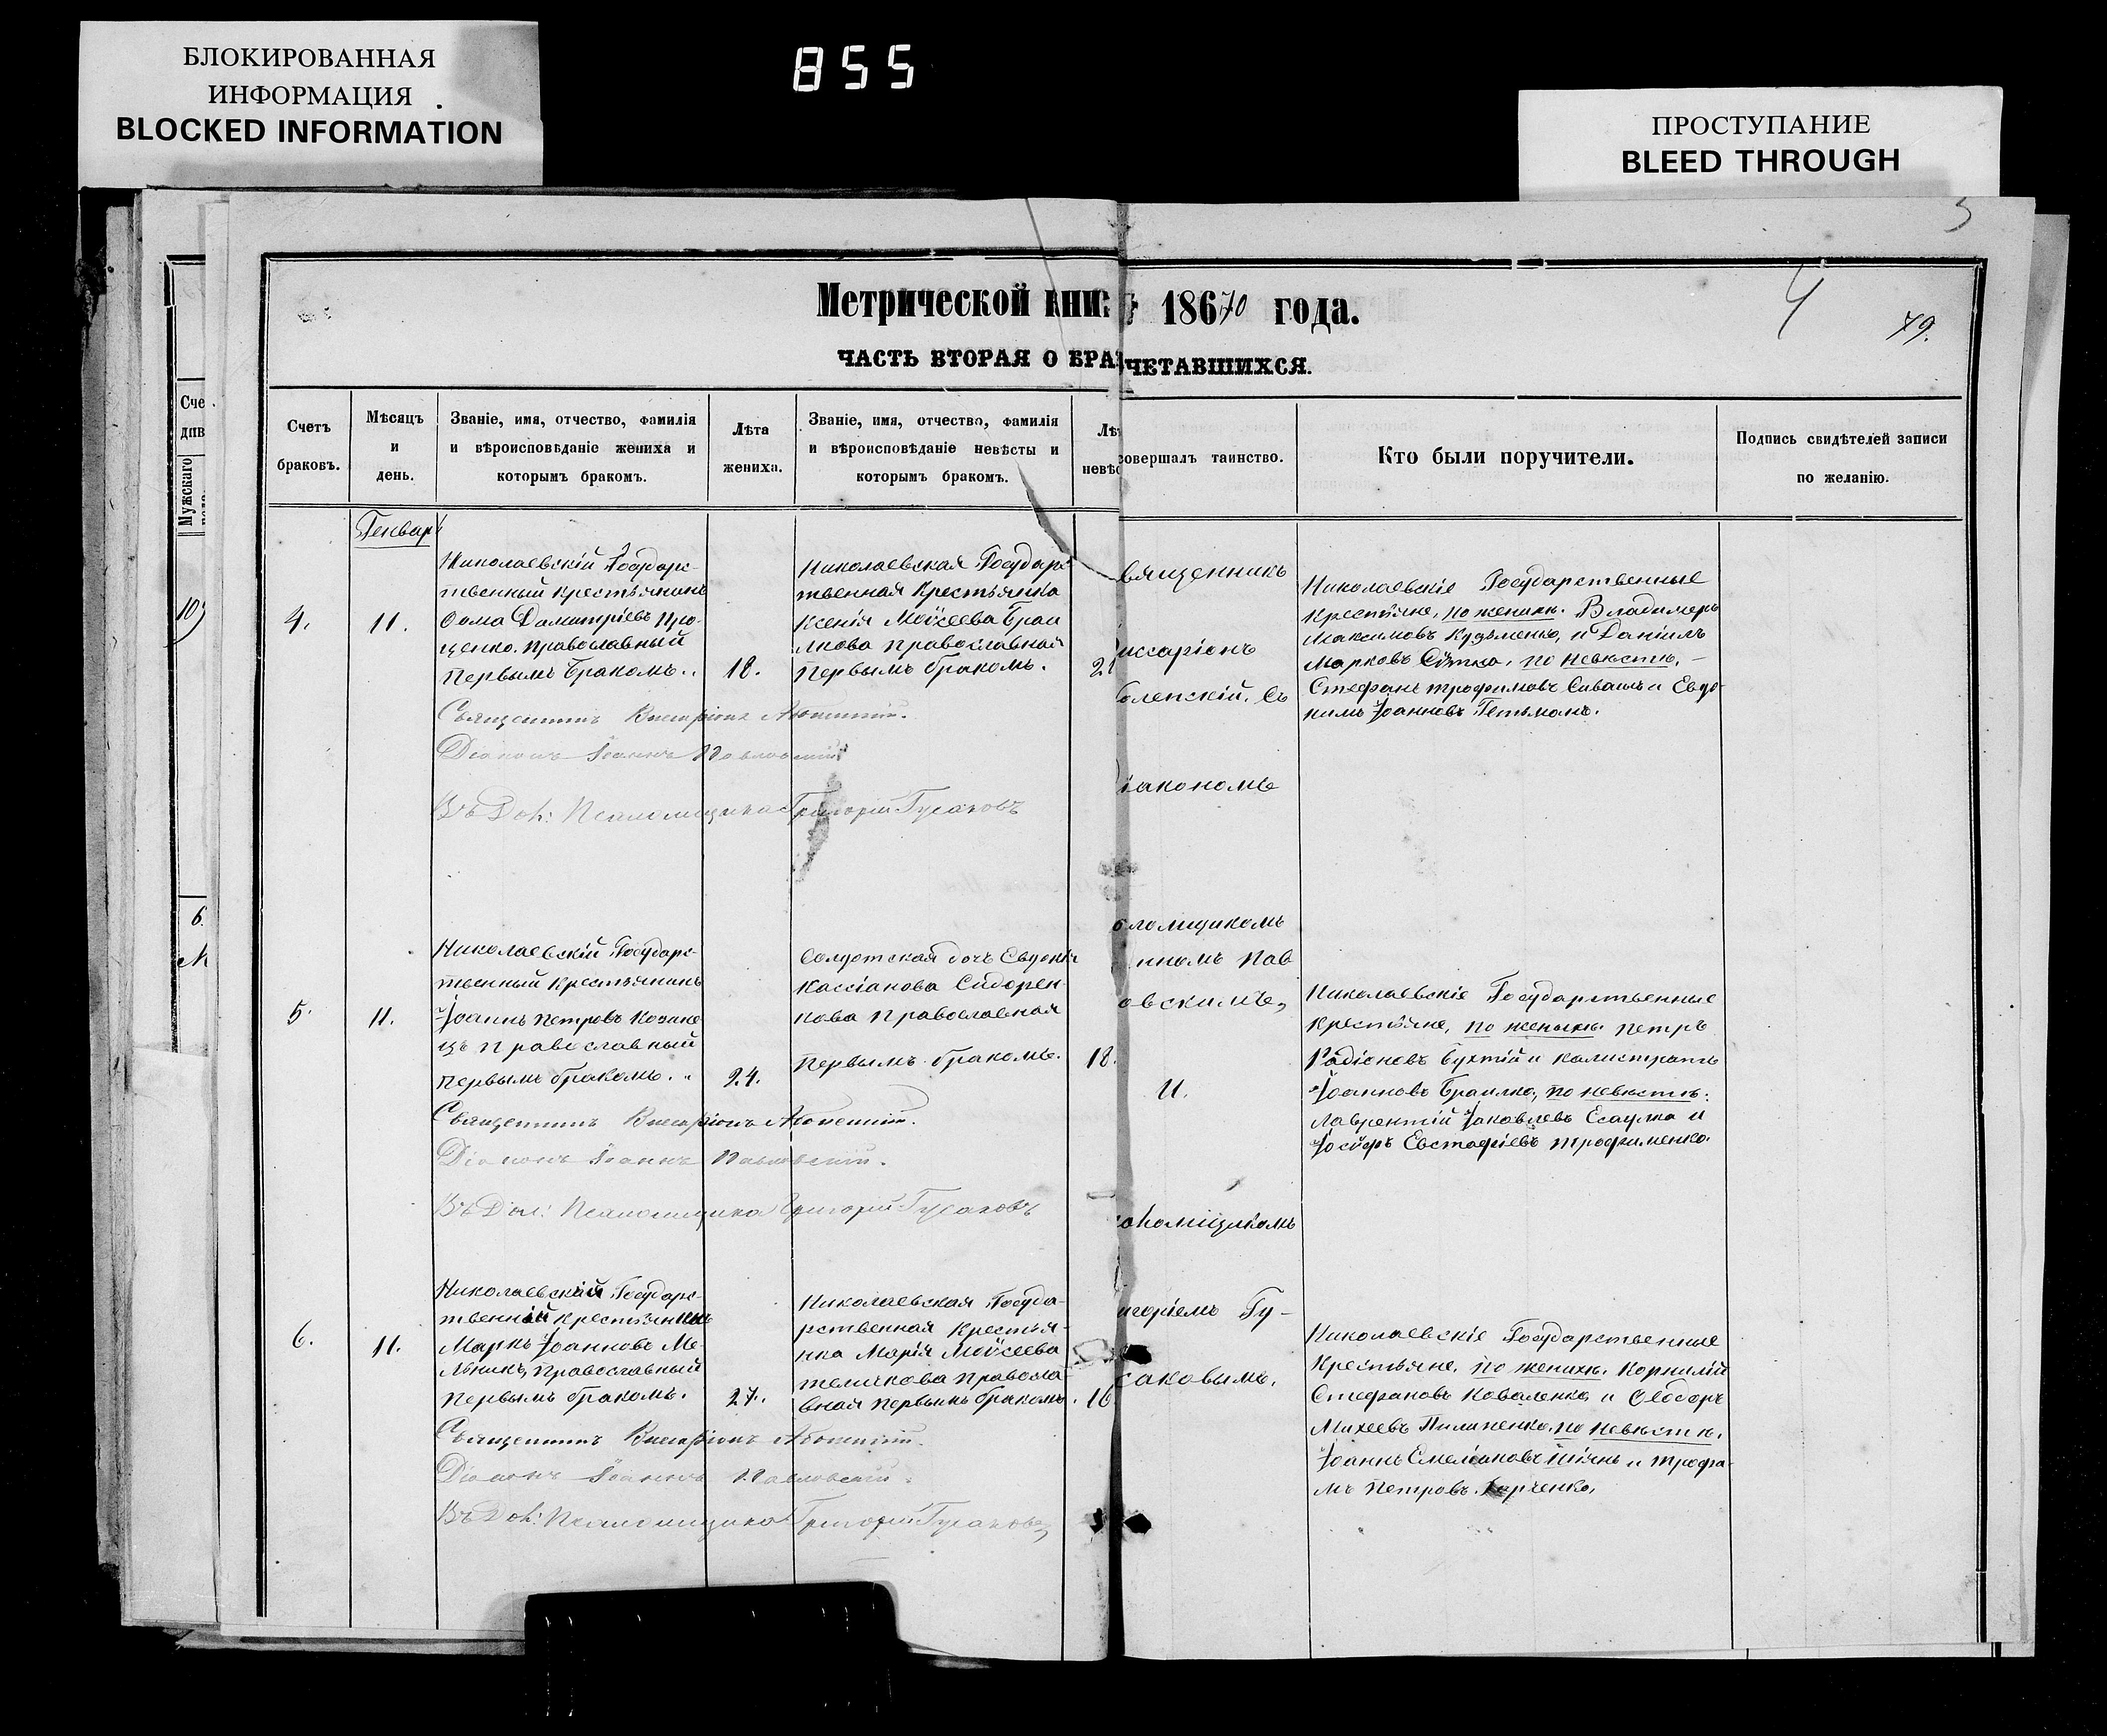 БЛОКИРОВАННАЯ
ИНФОРМАЦИЯ
BLOCKED INFORMATION
855
ПРОСТУПАНИЕ
BLEED THROUGH
Метрической книг 18670 года.
4
79.
ЧАСТЬ ВТОРАЯ О БРА
ЧЕТАВШИХСЯ.
Сче
Мужскаго
Счетъ
браковъ.
Мѣсяцъ
и
день.
Званіе, имя, отчество, фамилія
и вѣроисповѣданіе жениха и
которымъ бракомъ.
Лѣта
жениха.
Званіе, имя, отчество, фамилія
и вѣроисповѣданіе невѣсты и
которымъ бракомъ.
Лѣ
невѣс
совершалъ таинство.
Кто были поручители.
Подпись свидѣтелей записи
по желанію.
Генварь
4.
11.
Николаевскій Государс-
твенный крестьянинъ
Ѳома Димитріевъ Про-
ценко, православный
первымъ бракомъ.
18.
Николаевская Государс
твенная крестьянка
Ксенія Моѵсеева Браи
лкова православная
первымъ бракомъ.
21
вященникъ
иссаріонъ
Съ
іакономъ
Николаевскіе Государственные
крестьяне, по женихѣ. Владимеръ
Максимовъ Кузьменко, и Даніилъ
Марковъ по невѣстѣ, -
Стефанъ Трофимовъ Сивашъ и Евдо-
кимъ Іоанновъ Гетьманъ.
Священникъ Виссаріонъ
Діаконъ Іоаннъ Павловскій
Въ Дол: Псаломщика Григорій Гусаковъ
5.
11.
Николаевскій Государс-
твенный крестьянинъ
Іоаннъ Петровъ Козине
цъ православный
первымъ бракомъ.
24.
Солдатская дочь Евдокія
Кассіанова Сидорен-
кова православная
первымъ бракомъ.
18.
аломщикомъ
нномъ Пав
овскимъ,
И.
Николаевскіе Государственные
крестьяне, по женихѣ. Петръ
Радіоновъ Бухтій и Калистратъ
Іоанновъ Браилко, по невѣстѣ:
Лаврентій Іаковлевъ Есаулка и
Іосифъ Евстафіевъ Трофименко.
Священникъ Виссаріонъ
Діаконъ Іоаннъ Павловскій.
Въ Дол: Псаломщика Григорій Гусаковъ
6.
11.
Николаевскій Государс-
твенный крестьянинъ
Маркъ Іоанновъ Ме-
льникъ, православный
первымъ бракомъ.
27.
Николаевская Госуда-
рственная крестья-
нка Марія Моѵсеева
Теличкова правосла-
вная первымъ бракомъ.
16
аломщикомъ
игоріемъ Гу-
саковымъ.
Николаевскіе Государственные
крестьяне, по женихѣ. Корнилій
Стефановъ Коваленко, и Ѳеодоръ
Михеевъ Пилипенко, по невѣстѣ,
Іоаннъ Емеліановъ и Трофи-
мъ Петровъ
Священникъ Виссаріонъ
Діаконъ Іоаннъ Павловскій.
Въ Дол: Псаломщика Григорій Гусаковъ